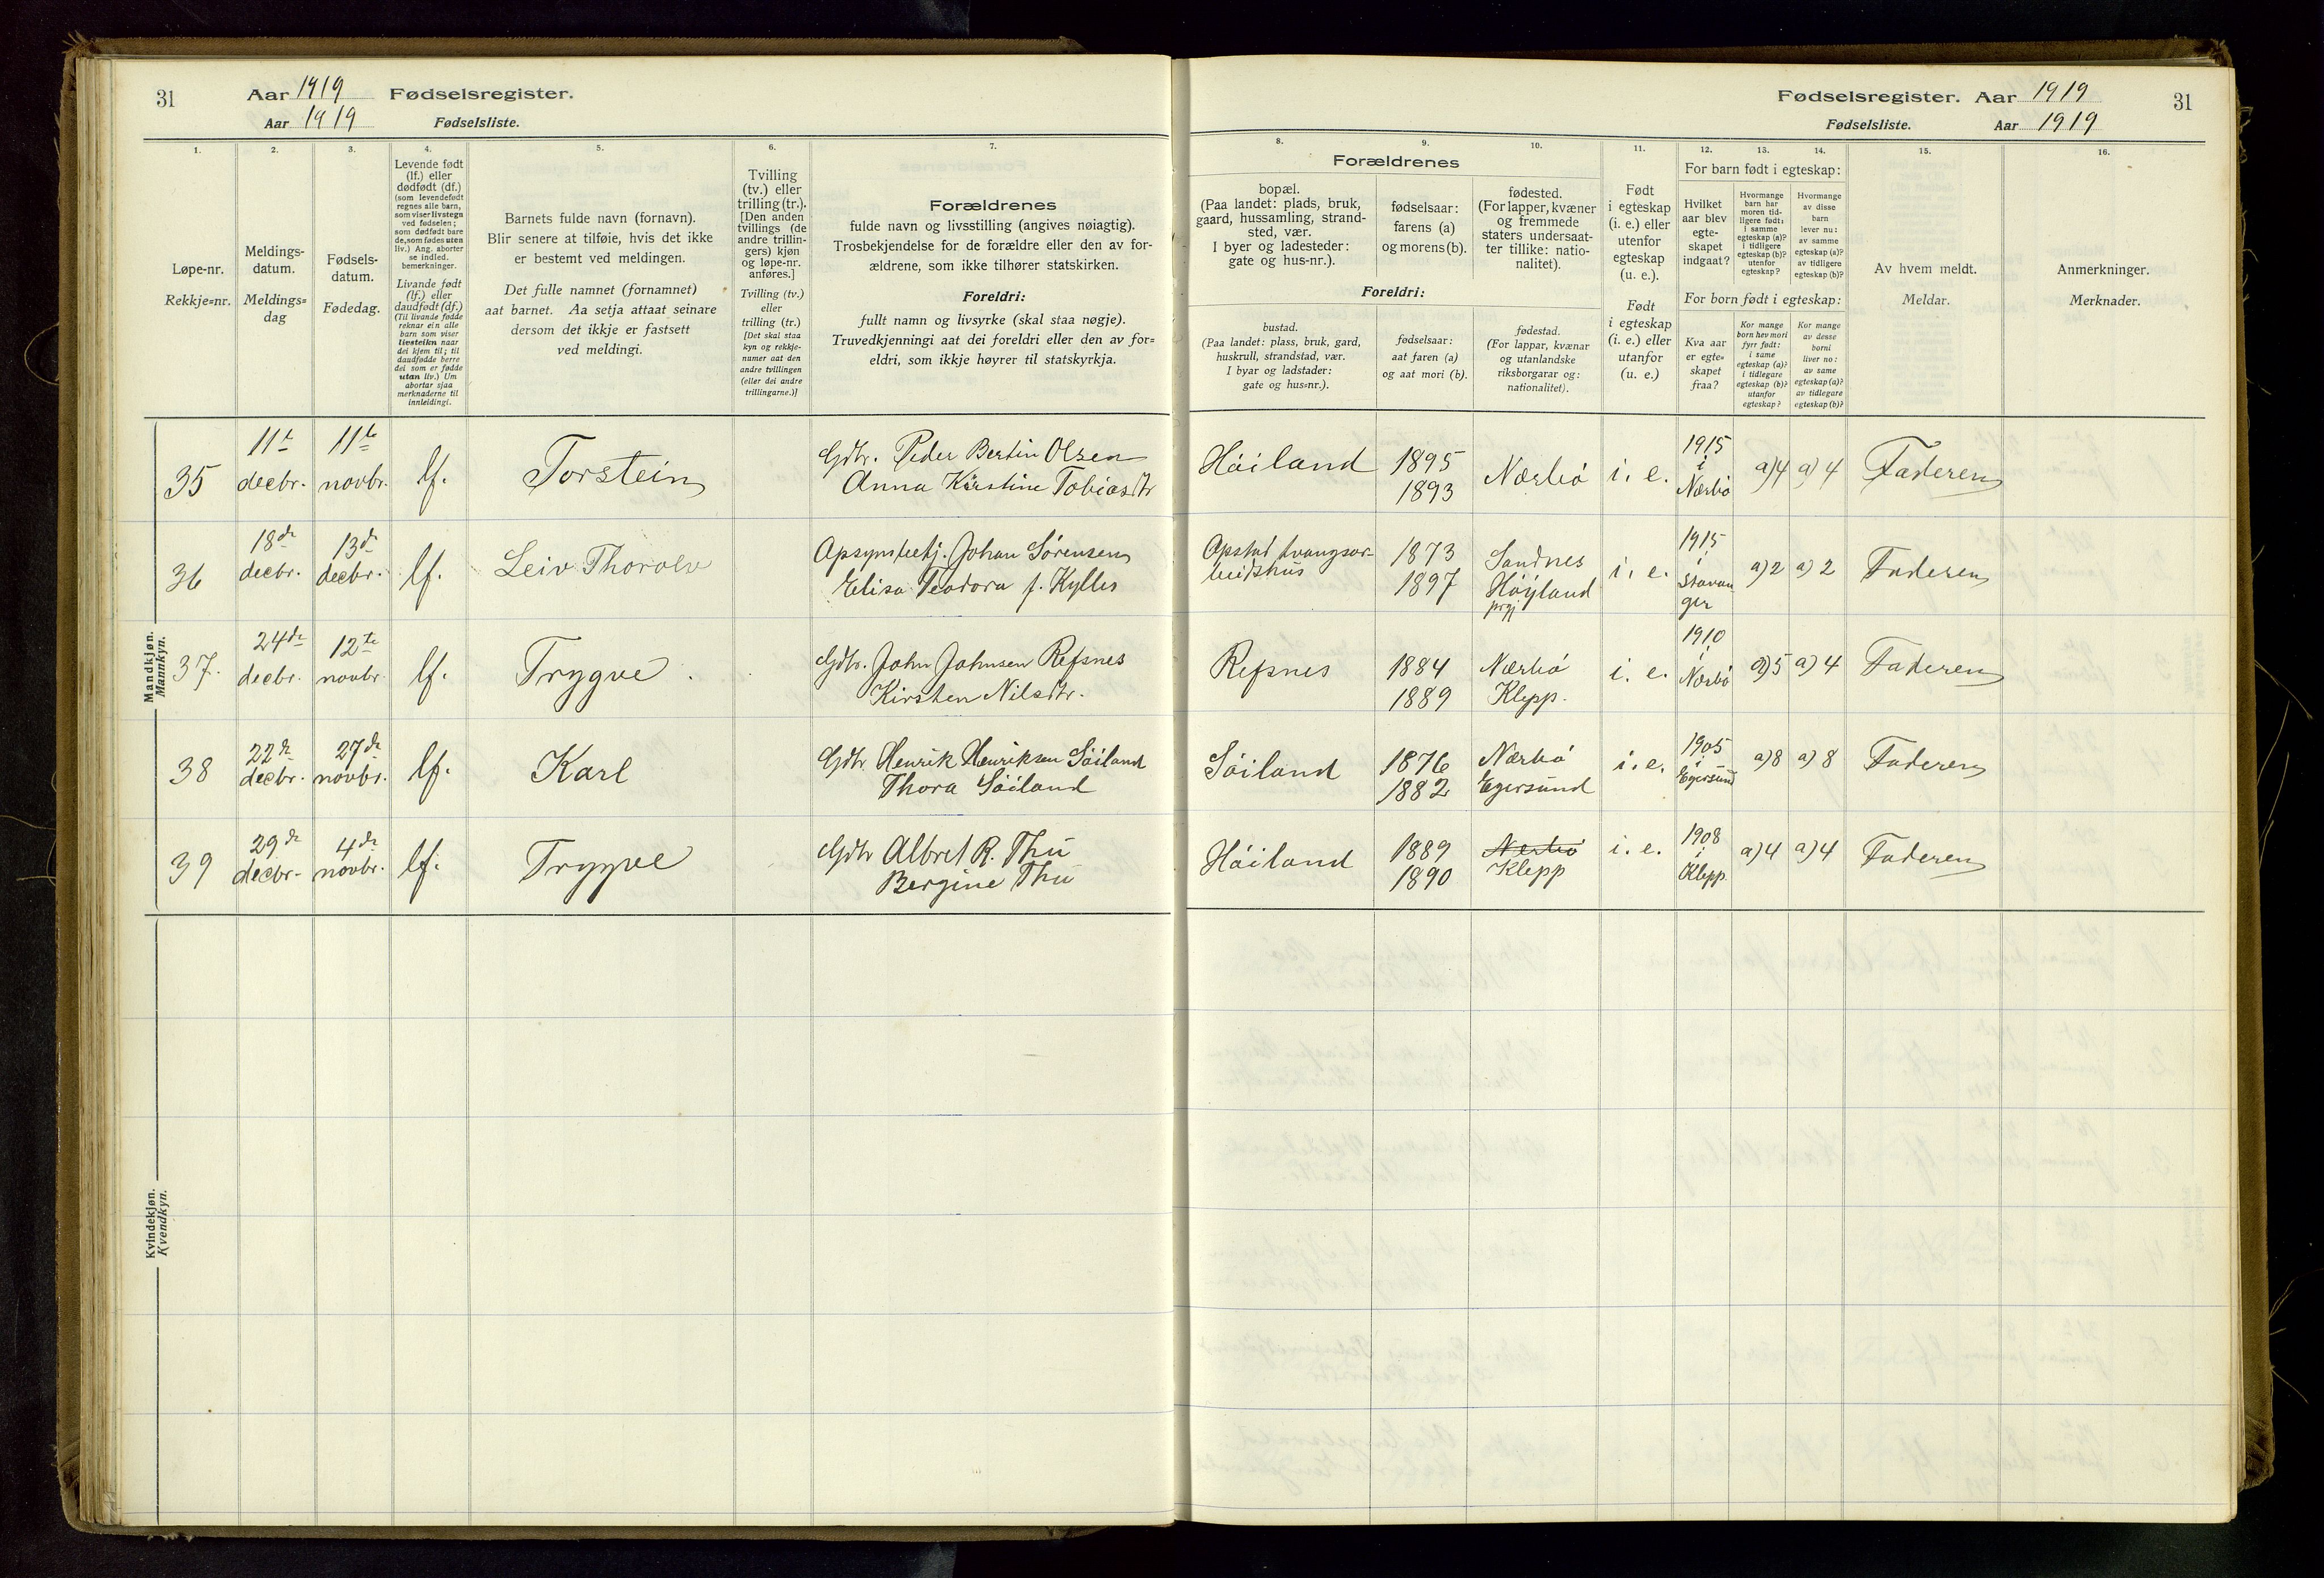 31 Aar 1919 Fødselsregister.
Aar 1919 Fødselsliste.
Fødselsregister. Aar 1919 31
Fødselsliste. Aar 1919
1. 2. 3. 4. 5. 6. 7. 8. 9. 10. 11. 12. 13. 14. 15. 16.
Løpe-nr.
Rekkje=nr.
Meldings-
datum.
Meldings=
dag
Fødsels-
datum.
Fødedag.
Levende født
(lf.) eller
dødfødt (df.)
(som levendefødt
regnes alle barn,
som viser livstegn
ved fødselen;
som dødfødt bare
de, som fødes uten
liv.) Ang. aborter
se indled.
bemerkninger.
Livande født
(lf.) eller
daudfødt (df.)
(Til livande fødde
reknar ein alle
barn som viser
livsteikn naar
dei kjem til; til
daudfødde berre
dei som er fødde
utan liv.) Um
abortar sjaa
merknaderne til
innleidingi.
Barnets fulde navn (fornavn).
Blir senere at tilføie, hvis det ikke
er bestemt ved meldingen.
Det fulle namnet (fornamnet)
aat barnet. Aa setja attaat seinare
dersom det ikkje er fastsett
ved meldingi.
Tvilling
(tv.) eller
trilling (tr.).
[Den anden
tvillings (de
andre trillin-
gers) kjøn
og løpe-nr.
anføres.]
Tvilling (tv.)
eller
trilling (tr.)
[Det skal staa
kyn og rekkje-
numer aat den
andre tvillingen
(eller dei andre
trillingarne.)]
Forældrenes
fulde navn og livsstilling (angives nøiagtig).
Trosbekjendelse for de forældre eller den av for-
ældrene, som ikke tilhører statskirken.
Foreldri:
fullt namn og livsyrke (skal staa nøgje).
Truvedkjenningi aat dei foreldri eller den av for=
eldri, som ikkje høyrer til statskyrkja.
Forældrenes
bopæl.
(Paa landet: plads, bruk,
gaard, hussamling, strand-
sted, vær.
I byer og ladesteder:
gate og hus-nr.).
fødselsaar:
farens (a)
og morens (b).
fødested.
(For lapper, kvæner
og fremmede
staters undersaat-
ter tillike: natio-
nalitet).
Foreldri:
bustad.
(Paa landet: plass, bruk, gard,
huskrull, strandstad, vær.
I byar og ladstader:
gate og hus=nr.).
fødselsaar:
aat faren (a)
og aat mori (b).
fødestad.
(For lappar, kvænar
og utanlandske
riksborgarar og:
nationalitet).
Født
i egteskap
(i. e.) eller
utenfor
egteskap
(u. e.).
Født
i egteskap
(i. e.) eller
utanfor
(u. e.)
For barn født i egteskap:
Hvilket
aar blev
egte-
skapet
indgaat?
Hvormange
barn har
moren tid-
ligere født:
i samme
egteskap (a)?
i tidligere
egteskap (b)?
utenfor
egteskap?
Hvormange
av disse
barn
lever nu:
av samme
egteskap (a)?
av tidligere
egteskap (b)?
For born født i egteskap:
Kva aar
er egte=
skapet
fraa?
Kor mange
born hev mori
fyrr født:
i same
egteskap (a)?
i tidlegare
egteskap (b)?
utanfor
egteskap?
Kor mange
av desse
borni
liver no:
av same
egteskap (a)?
av tidlegare
egteskap (b)?
Av hvem meldt.
Meldar.
Anmerkninger.
Merknader.
Mandkjøn.
Mannkyn.
35 11te decbr. 11te novbr. lf. Torstein Gdbr. Peder Bertin Olsen
Anna Kirstine Tobiasdtr
Høiland 1895 1893 Nærbø i. e. 1915 i Nærbø a) 4 a) 4 Faderen
36 18de decbr. 13de decbr. lf. Leiv Thorolv Johan Sørensen
Elisa Teodora f. Kylles
Opstad tvangsar-
beidshus 1873 1897 Sandnes Höyland prgj i. e. 1915 i Stavan
ger a) 2 a) 2 Faderen
37. 24de decbr. 12te novbr. lf. Trygve. Gdbr. John Johnsen Refsnes
Kirsten Nilsdtr.
Refsnes 1884 1889 Nærbø Klepp. i. e. 1910 i Nærbø a) 5 a) 4 Faderen
38 22de decbr. 27de novbr. lf. Karl Gdbr. Henrik Henriksen Søiland
Thora Søiland
Søiland 1876 1882 Nærbø Egersund i. e. 1905 i Egersund a) 8 a) 8 Faderen
39 29de decbr. 4de novbr. lf. Trygve Gdbr Albret R. Thu
Bergine Thu
Høiland 1889 1890 Nærbø Klepp i. e. 1908 i Klepp. a) 4 a) 4 Faderen
Kvindekjøn.
Kvendkyn.